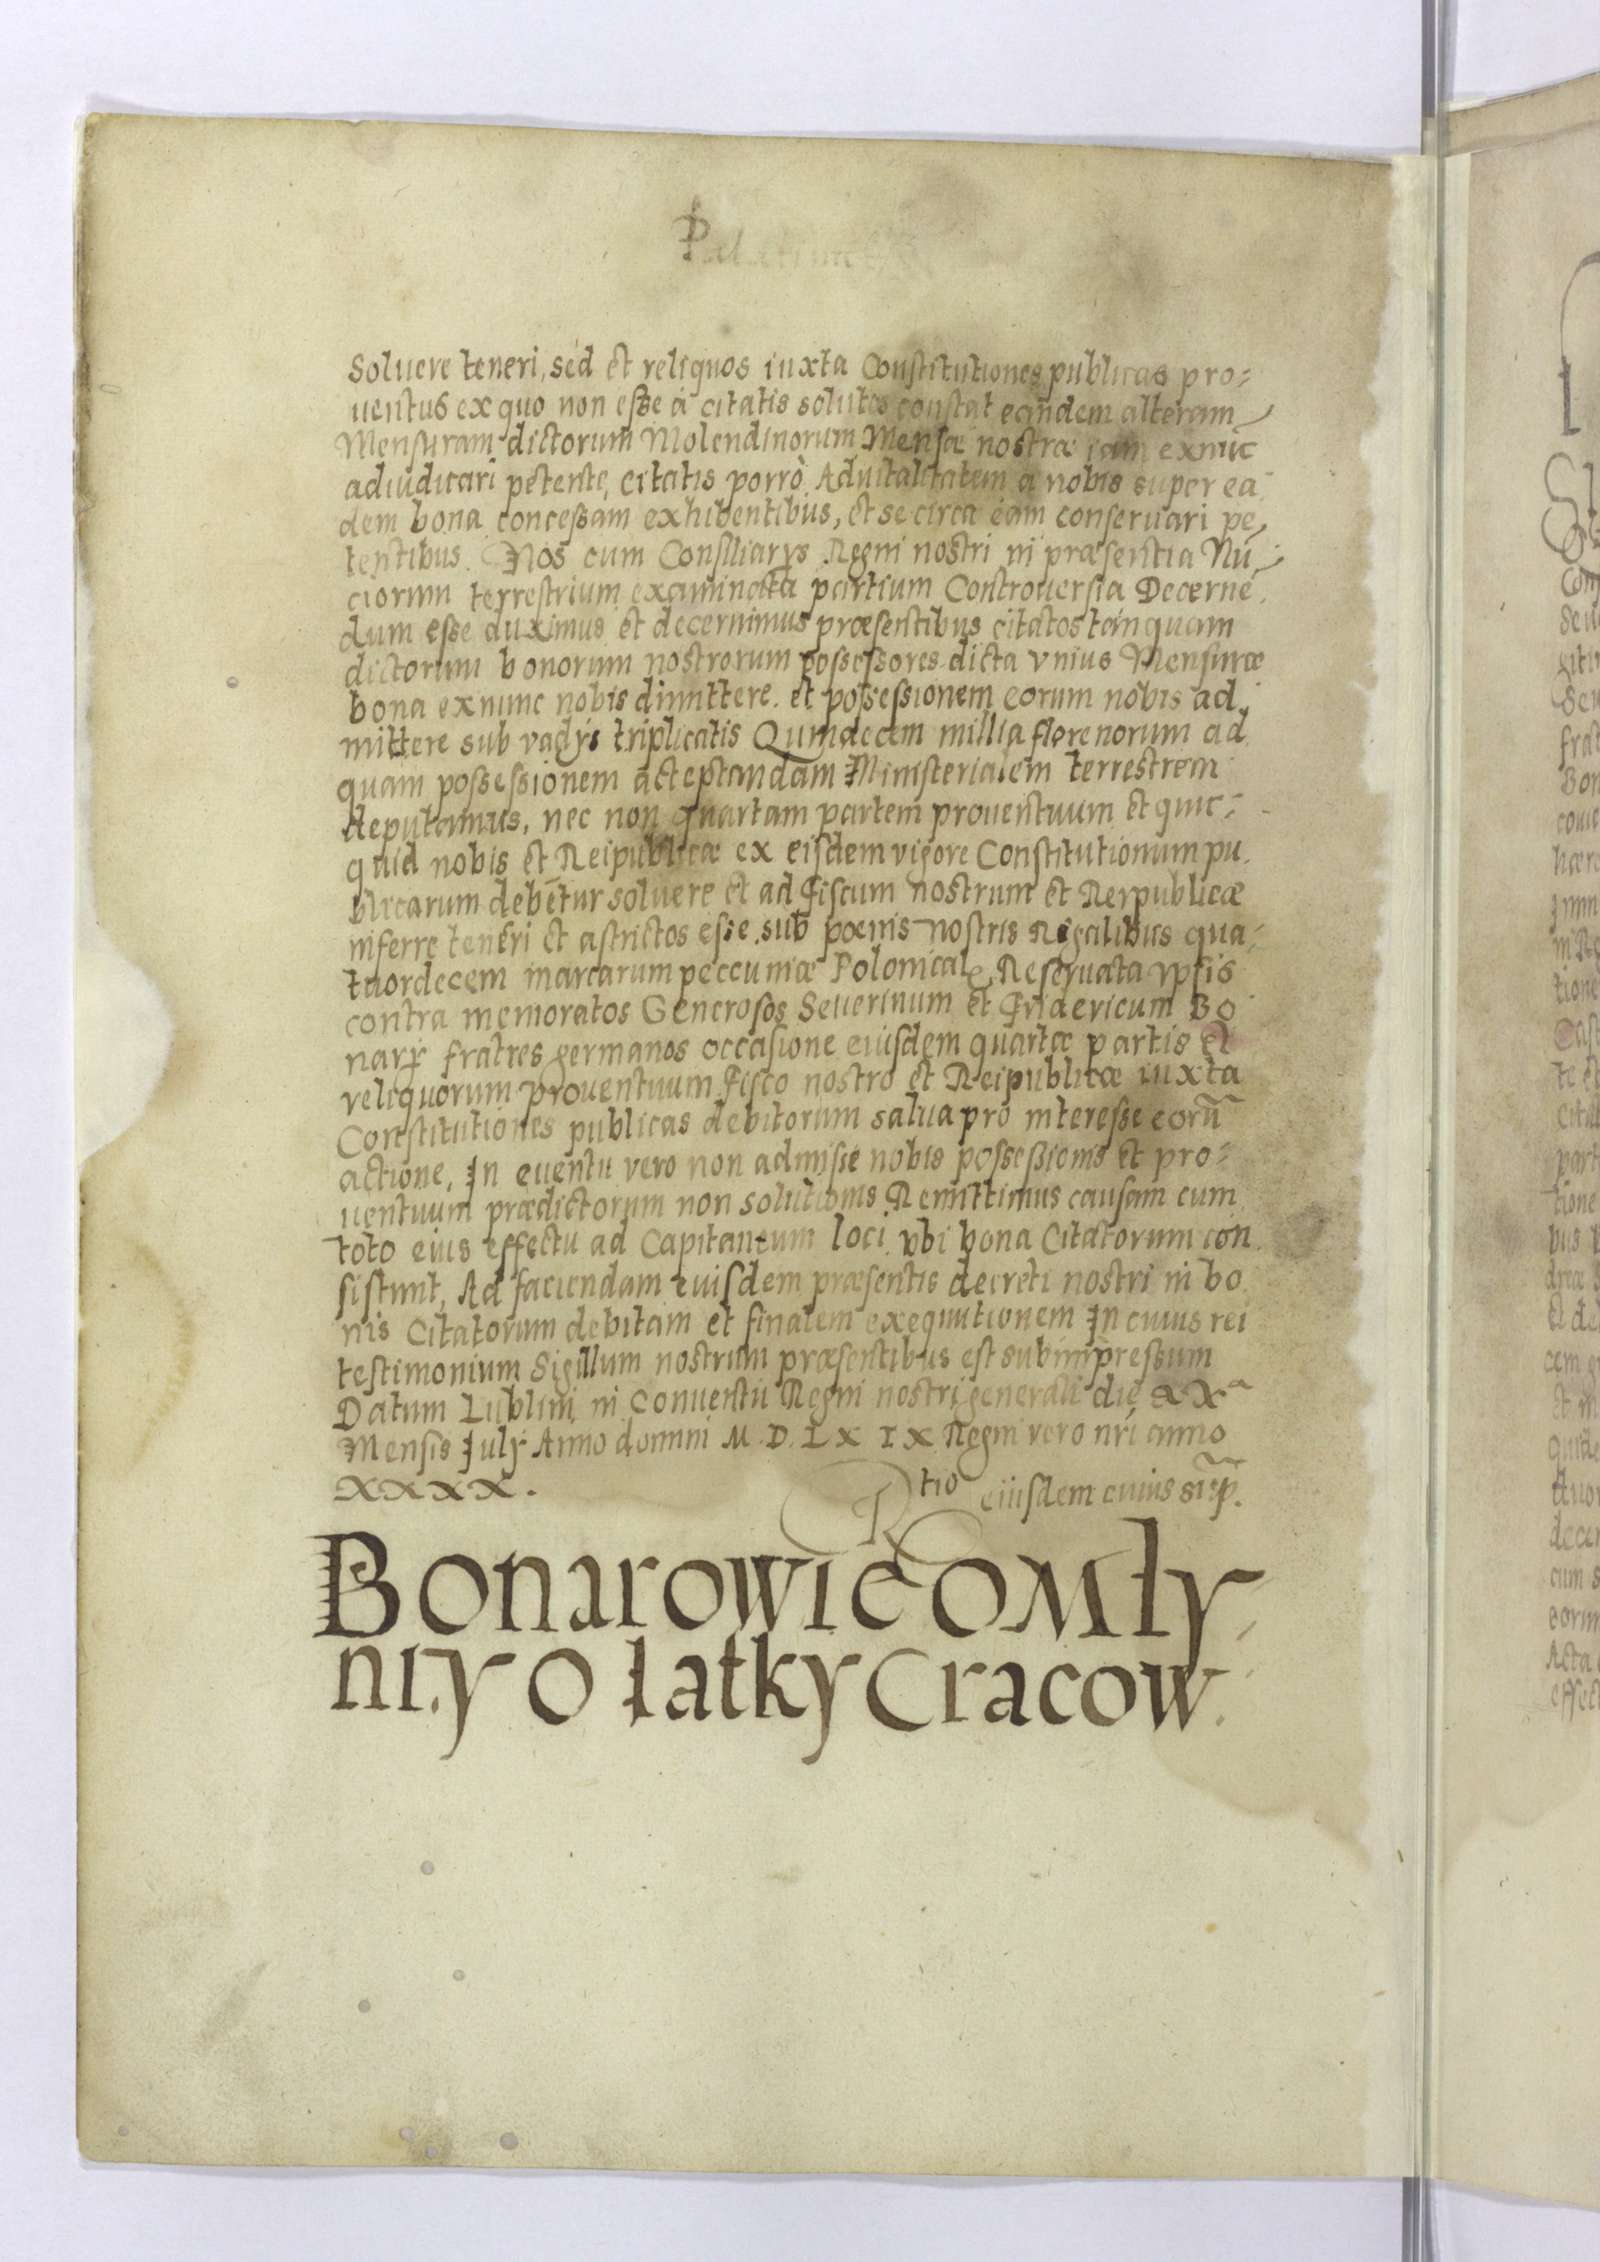 Palatinat
Soluere teneri, sed et reliquos iuxta Constitutiones publicas pro=
uentus ex quo non esse a citatis solutos constat eandem alteram
Mensuram dictorum Molendinorum Mensæ nostræ iam exnūc
adiudicari petente, citatis porrò Aduitalitatem a nobis super ea
dem bona concessam exhibentibus, et se circa eam conseruari pe,
tentibus. Nos cum Consiliarys Regni nostri in præsentia Nū,
ciorum terrestrium examinata partium Controuersia Decerne
dum esse duximus et decernimus præsentibus citatos tanquam
dictorum bonorum nostrorum possessores dicta vnius Mensuræ
bona exnunc nobis dimittere. et possessionem eorum nobis ad,
mittere sub vadÿs triplicatis Quindecem millia florenorum ad
quam possessionem acceptandam Ministerialem terrestrem
deputamus, nec non quartam partem prouentuum et quic=
quid nobis et Reipublicæ ex eisdem vigore Constitutionum pu.
blicarum debētur soluere et ad Fiscum nostrum et Reipublicæ
inferre teneri et astrictos esse sub poenis nostris Regalibus qua=
tuordecem marcarum peccuniæ Polonicalę, Reseruata ypsis
contra memoratos Generosos Seuerinum et Fridericum Bo
narÿ fratres germanos occasione eiusdem quartæ partis et
reliquorum prouentuum Fisco nostro et Reipublicæ iuxta
Constitutiones publicas debitorum salua pro interesse eorū
actione, In euentu vero non admisse nobis possessionis et pro=
uentuum prædictorum non solutionis Remittimus causam cum
toto eius effectu ad Capitaneum loci vbi bona Citatorum con
sistunt, Ad faciendam euisdem præsentis decreti nostri in bo
nis Citatorum debitam et finalem exequutionem In cuius rei
testimonium Sigillum nostrum præsentibus est subimpressum
Datum Lublini in Conuentu Regni nostri generali die XXᵃ
Mensis Julÿ Anno domini M. D. L X I X Regni vero nrī anno
XXXX.
Rtio eiusdem cuius sup̄.
Bonarowie o Mły=
ni. y o Iatky Cracow.